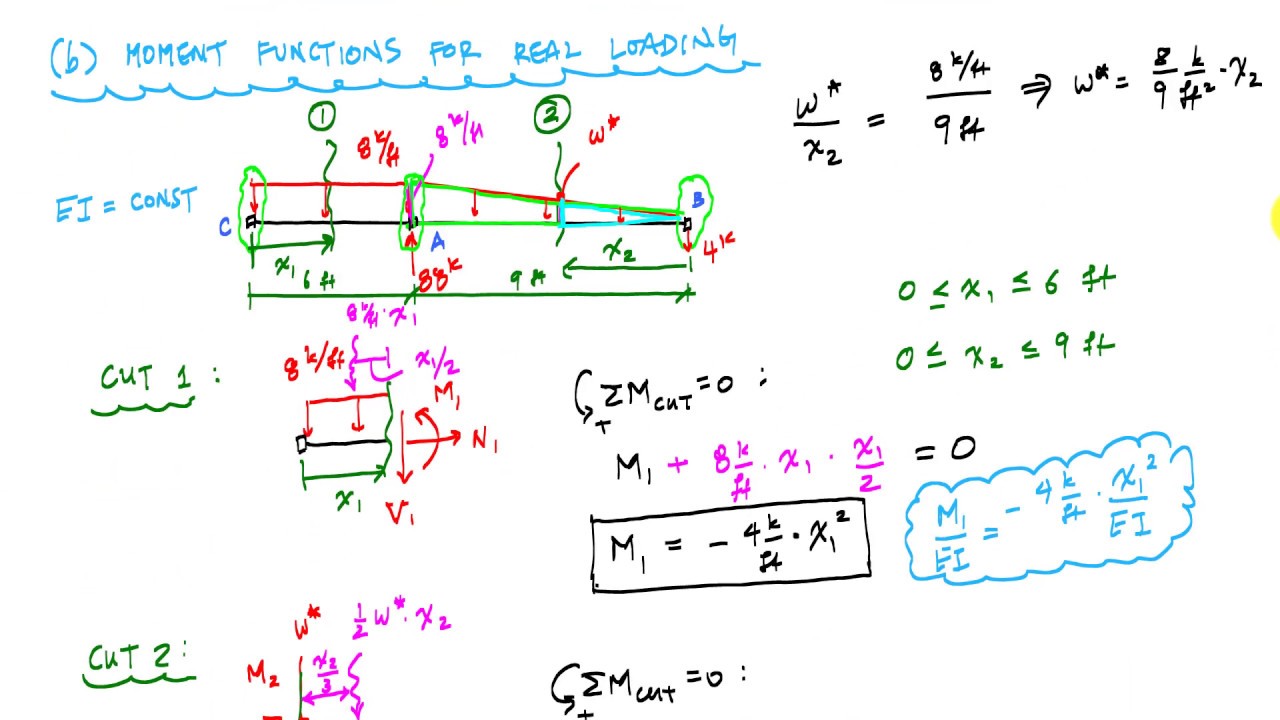 (b) MOMENT FUNCTIONS FOR REAL LOADING
w*/x₂ = 8 k/ft / 9 ft ⇒ w* = 8/9 k/ft² · x₂
① ②
8 k/ft 8 k/ft w*
EI = CONST
C A B
x₁ x₂ 4k
6 ft 88k 9 ft
0 ≤ x₁ ≤ 6 ft
0 ≤ x₂ ≤ 9 ft
8 k/ft · x₁
CUT 1 :
8 k/ft x₁/2
M₁
N₁
x₁ V₁
+ ΣM CUT = 0 :
M₁ + 8 k/ft · x₁ · x₁/2 = 0
M₁ = - 4 k/ft · x₁²
M₁/EI = - 4 k/ft · x₁²/EI
CUT 2 :
w* 1/2 w* · x₂
M₂ x₂/3
+ ΣM CUT = 0 :